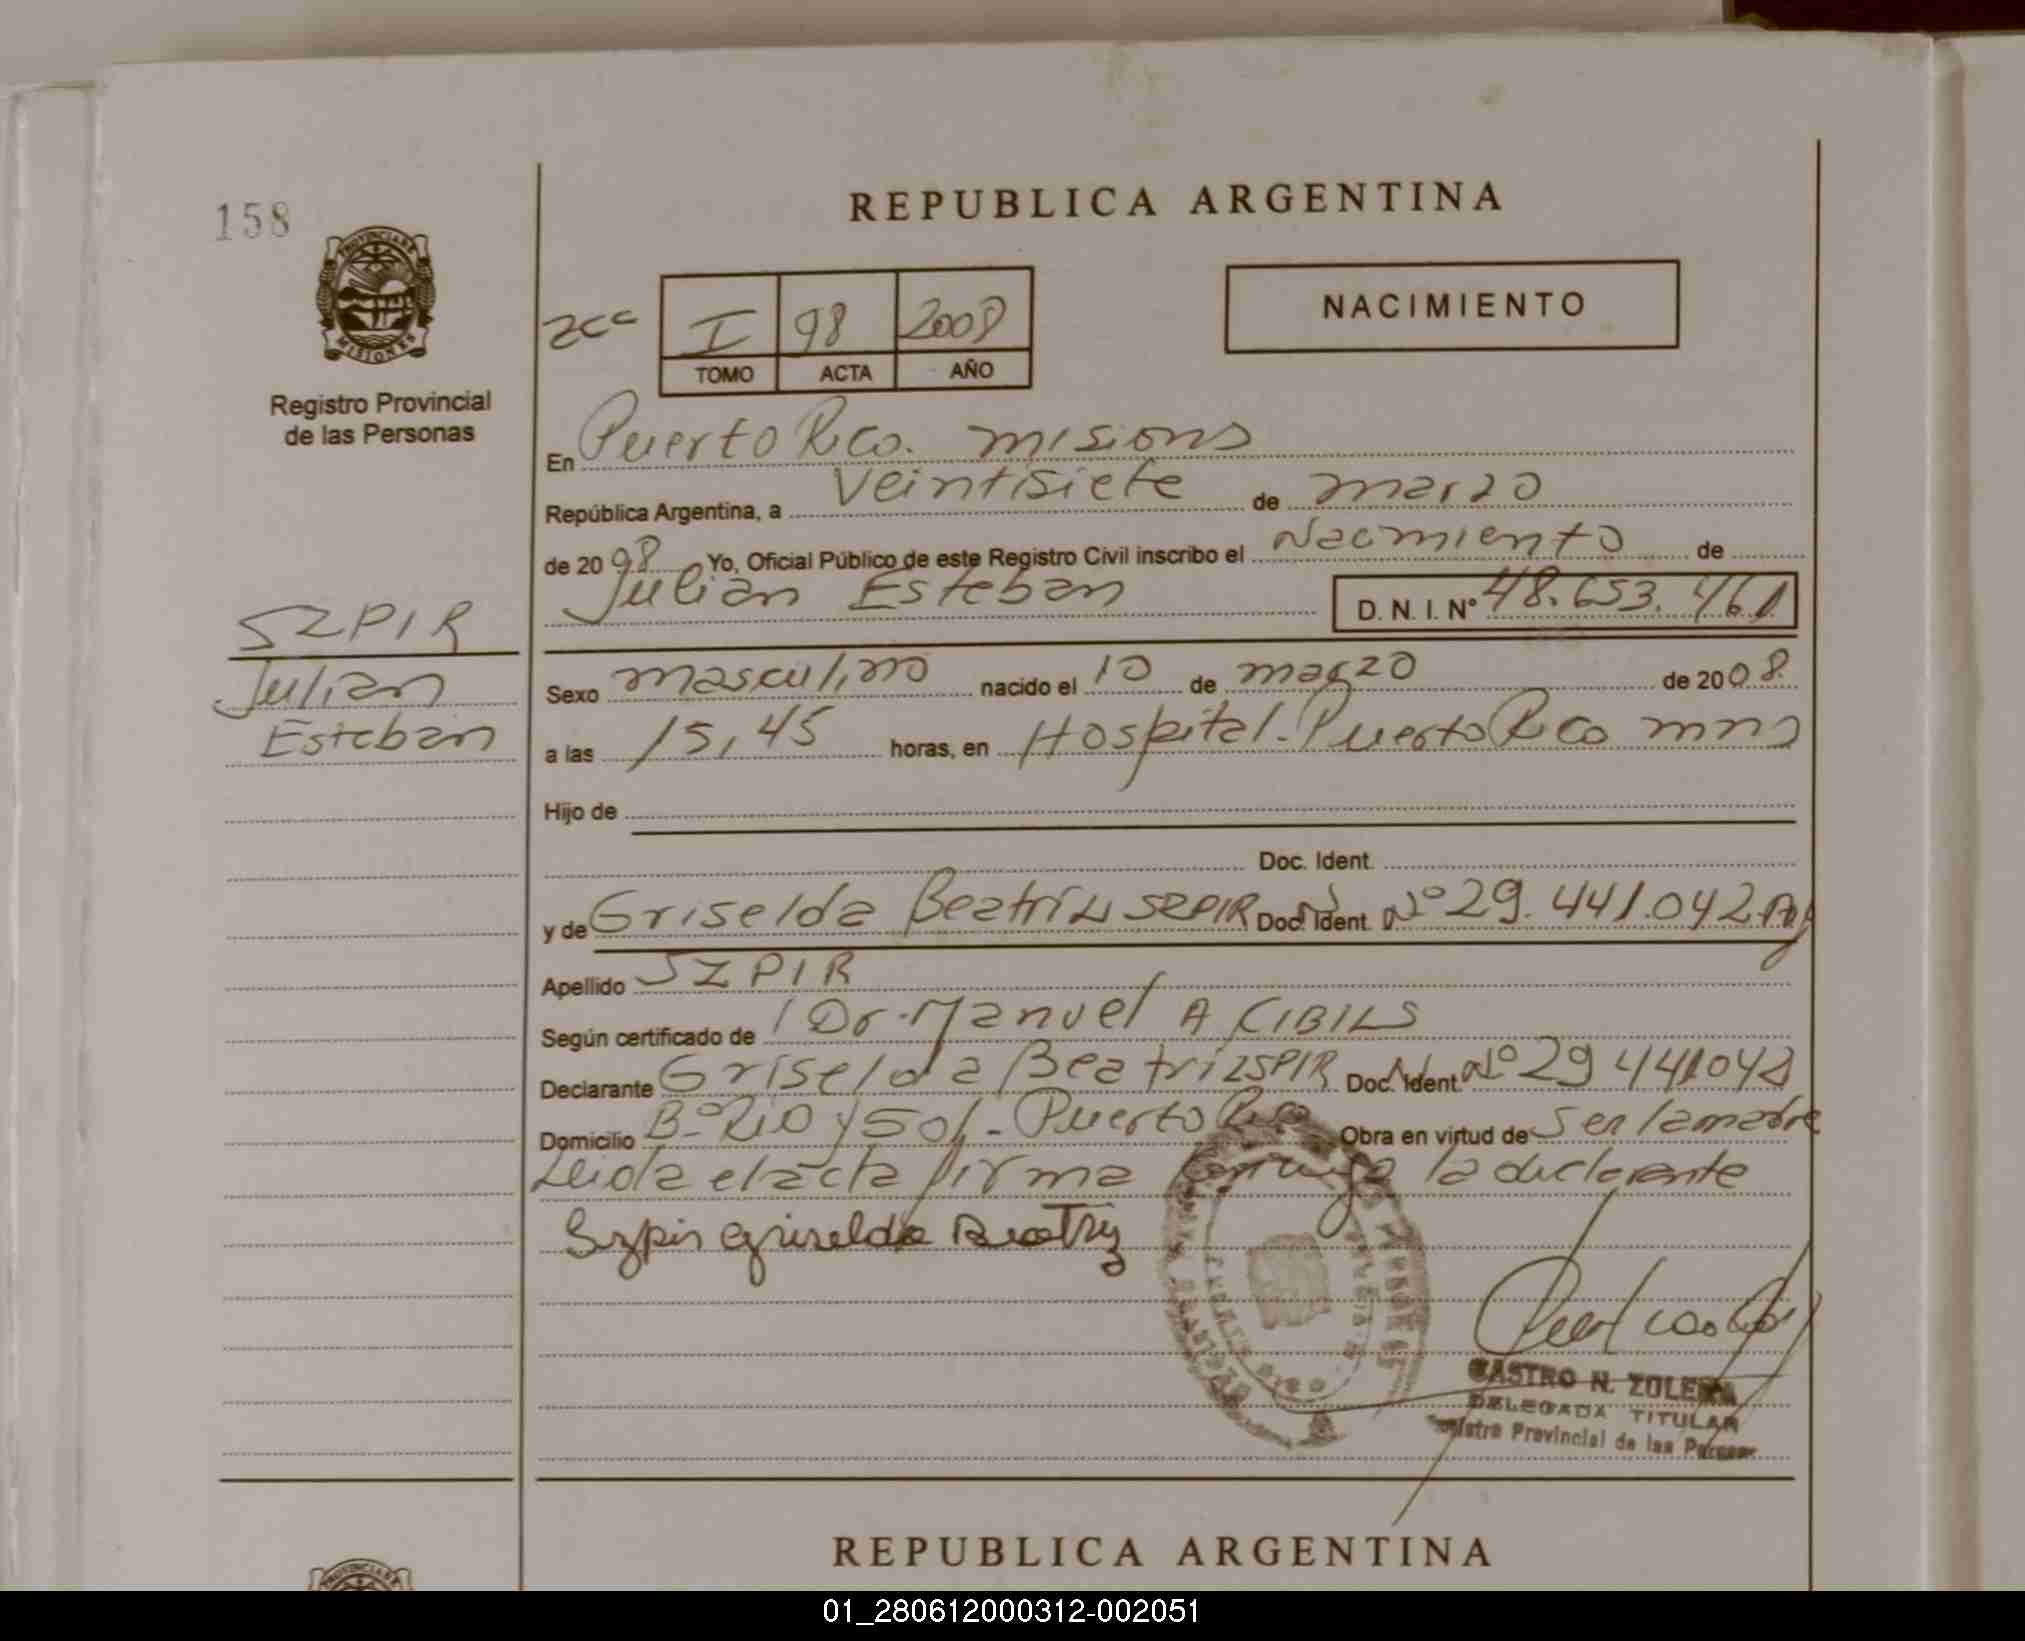 158
REPUBLICA ARGENTINA
PROVINCIA DE
MISIONES
Registro Provincial
de las Personas
NACIMIENTO
2cc I 98 2008
TOMO ACTA AÑO
En Puerto Rico. misions
República Argentina, a Veintisiete de marzo
de 20 98 Yo, Oficial Público de este Registro Civil inscribo el Nacimiento de
Julian Esteban D. N. I. N° 48.653.461
SZPIR
Julian
Esteban
Sexo masculino nacido el 10 de marzo de 2008.
a las 15,45 horas, en Hospital-Puerto Rico mns
Hijo de
Doc. Ident.
y de Griselda Beatriz SZPIR Doc. Ident. N° 29.441.042
Apellido SZPIR
Según certificado de Dr. Manuel A CIBILS
Declarante Griselda Beatriz SZPIR Doc. Ident. N° 29 441042
Domicilio B° Rio y Sol - Puerto Rico Obra en virtud de Ser la madre
Leida el acta firma conmigo la declarante
Szpir Griselda Beatriz
CASTRO N. ZULEMA
DELEGADA TITULAR
Registro Provincial de las Personas
REPUBLICA ARGENTINA
PROVINCIA DE
01_280612000312-002051